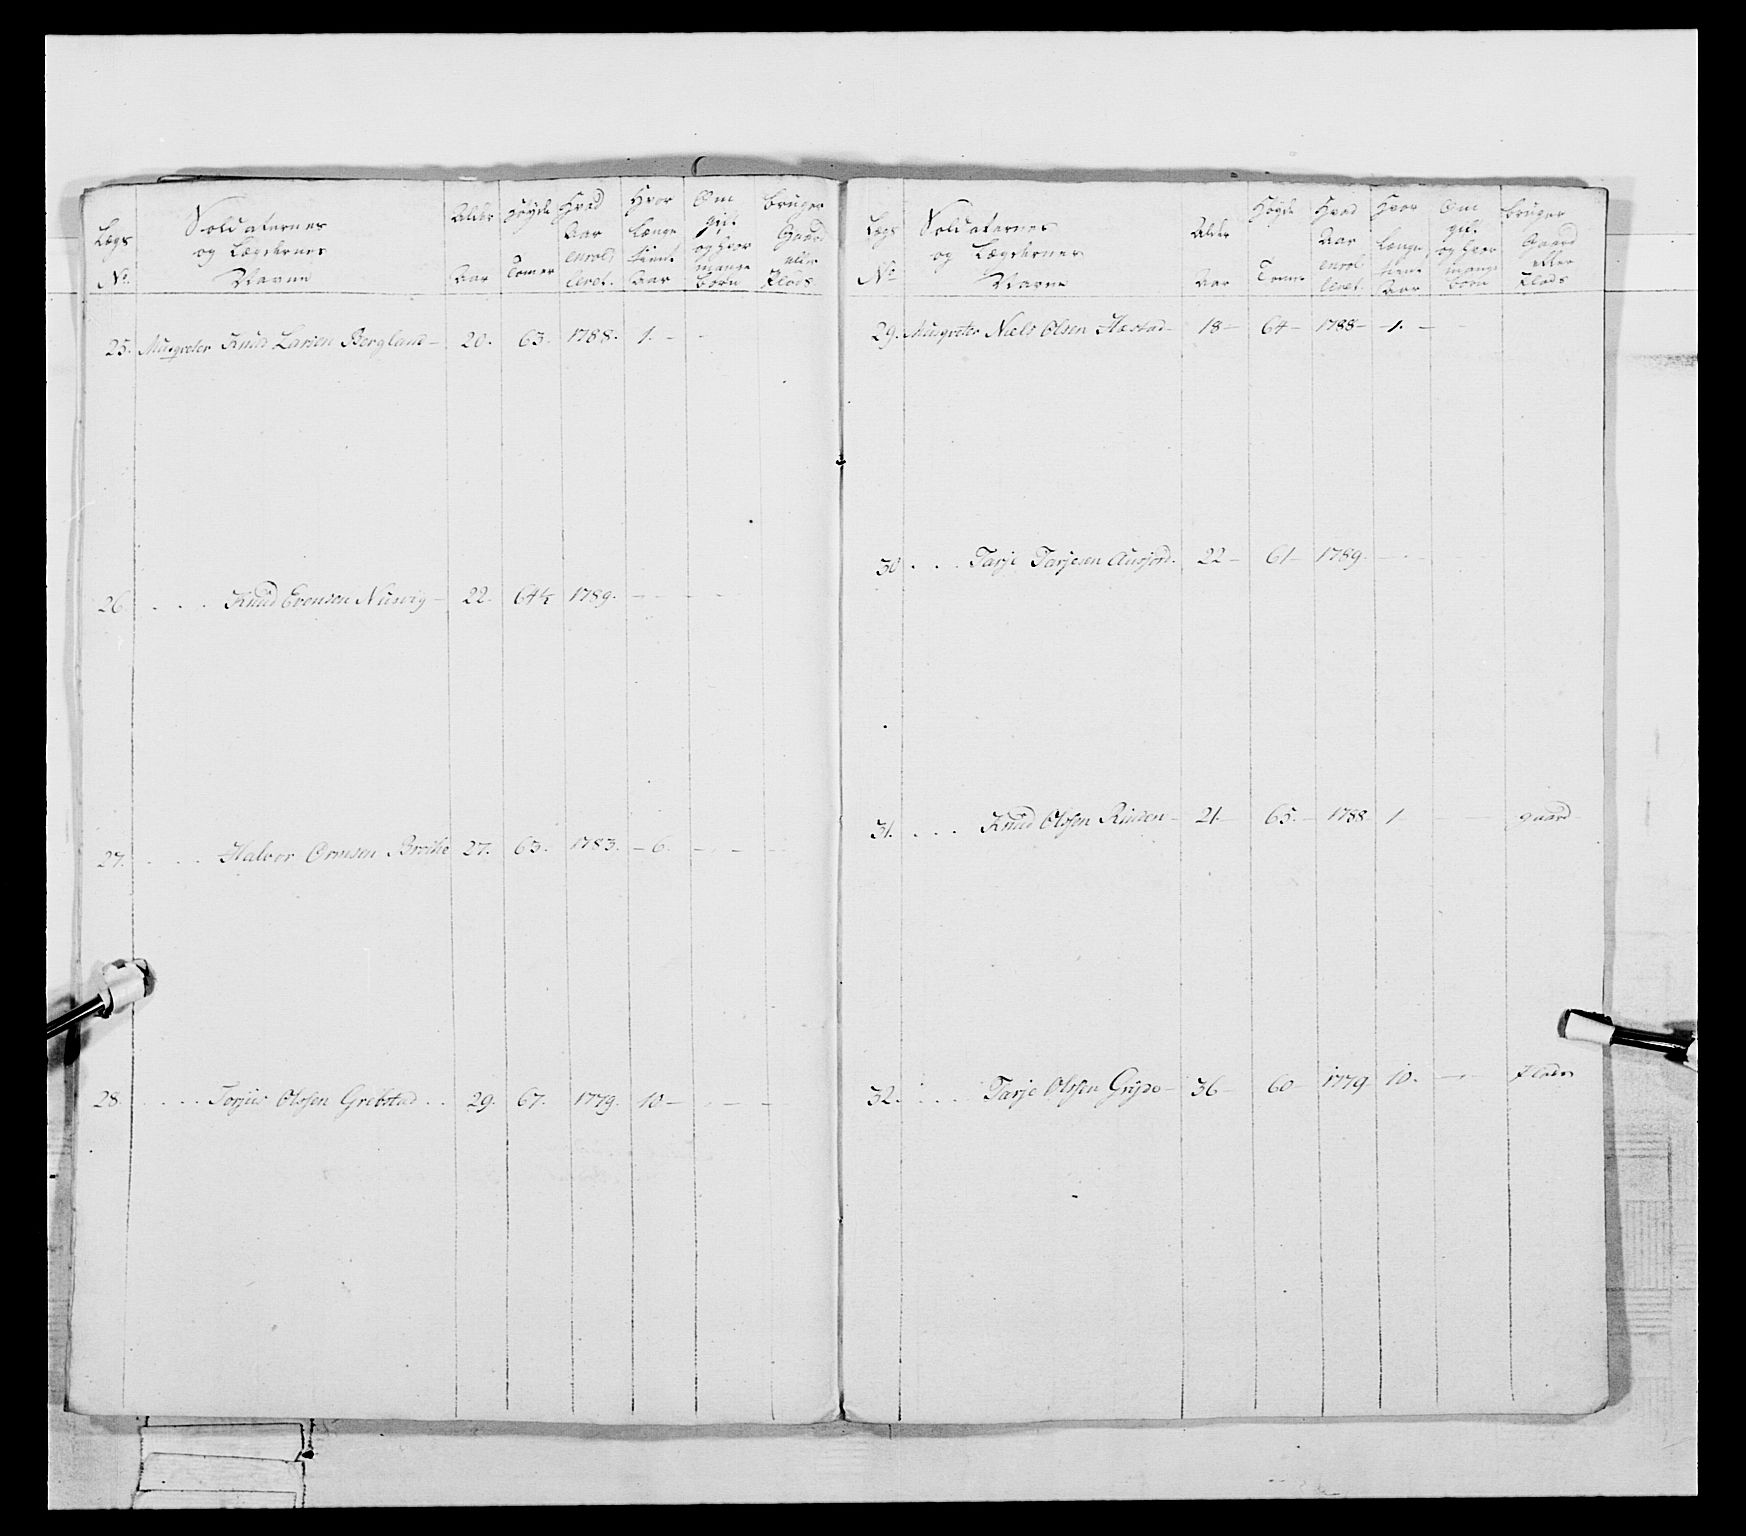 Lægs No. | Soldaternes og Lægdernes Navne | Alder Aar | Høyde Tomer | Hvad Aar enrolleret. | Hvor Længe tient Aar | Om gift og hvor mange børn | bruger Gaard eller Plads
25. Musqveter Knud Larsen Bergland – 20. 63. 1788. 1. – –
26 . . . Knud Evensen – 22. 64½ 1789. – – –
27. . . . Halvor Ormsen 27. 63. 1783. – 6. – – –
28. . . . . Torjus Olssen Grebstad . . 29. 67. 1779. 10 – – –
Lægs No. | Soldaternes og Lægdernes Navne | Alder Aar | Høyde Tomer | Hvad Aar enrolleret. | Hvor længe tient Aar | Om gift og hvor mange børn | bruger Gaard eller Plads
29. Musqveter Niels Olsen Hæstad – 18 – 64 – 1788 – – 1. –
30 . . . Tarje Tarjesen 22 – 61 – 1789. –
31. . . . Knud Olssen – 21 – 65. – 1788 1 gaard
32. . . . Tarje Olssen – 36 60 – 1779 10. – Plads